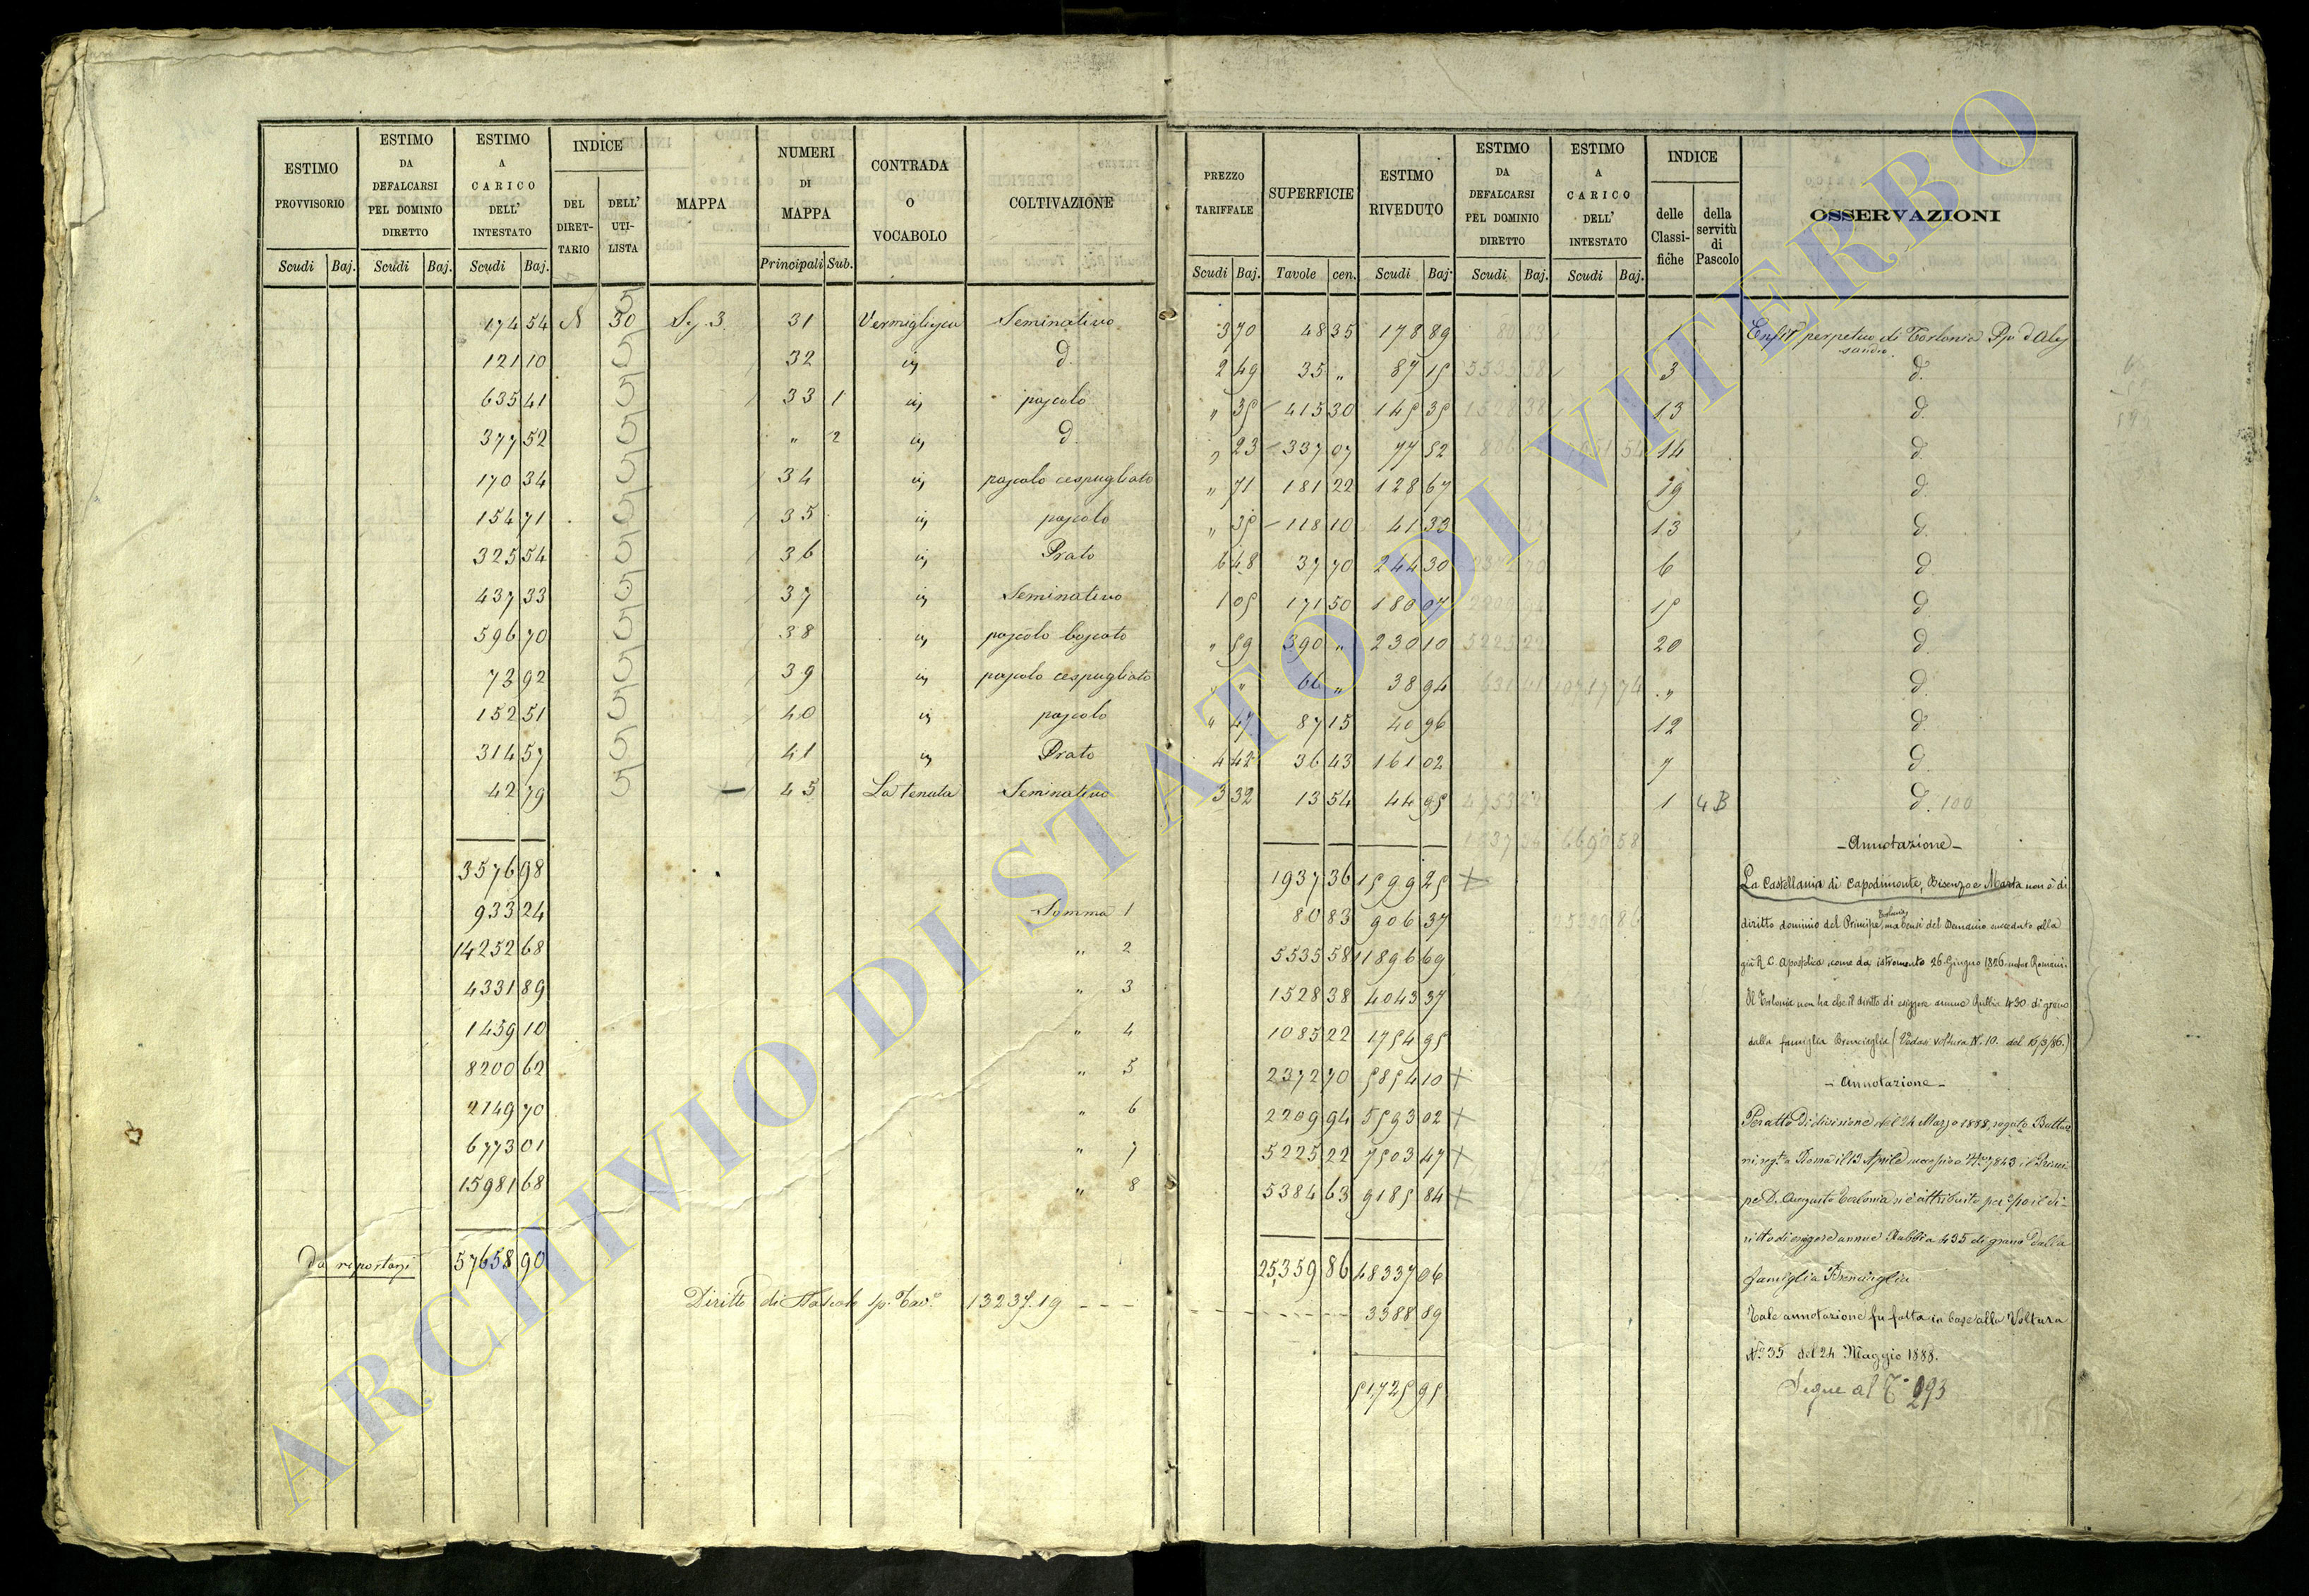 ESTIMO PROVVISORIO | ESTIMO DA DEFALCARSI PEL DOMINIO DIRETTO | ESTIMO A CARICO DELL' INTESTATO | INDICE DEL DIRETTARIO | DELL' UTILISTA | MAPPA | NUMERI DI MAPPA | CONTRADA O VOCABOLO | COLTIVAZIONE | PREZZO TARIFFALE | SUPERFICIE | ESTIMO RIVEDUTO | ESTIMO DA DEFALCARSI PEL DOMINIO DIRETTO | ESTIMO A CARICO DELL' INTESTATO | INDICE delle Classifiche | della servitù di Pascolo | OSSERVAZIONI
Scudi | Baj. | Scudi | Baj. | Scudi | Baj. | Principali | Sub. | Scudi | Baj. | Tavole | cen. | Scudi | Baj. | Scudi | Baj. | Scudi | Baj.
174 54 | N | 30 | 3 | 31 | Seminativo | 3 70 | 48 35 | 178 89 | 1 | perpetuo di Torlonia
121 10 | 5 | 32 | d. | 2 49 | 35 „ | 87 15 | 3 | d.
635 41 | 5 | 33 | 1 | pascolo | „ 35 | 415 30 | 145 35 | 13 | d.
377 52 | 5 | „ | 2 | d. | „ 23 | 337 07 | 77 52 | 14 | d.
170 34 | 5 | 34 | pascolo cespugliato | „ 71 | 181 22 | 128 67 | 19 | d.
154 71 | 5 | 35 | pascolo | „ 35 | 118 10 | 41 33 | 13 | d.
325 54 | 5 | 36 | Prato | 6 48 | 37 70 | 244 30 | 6 | d.
437 33 | 5 | 37 | Seminativo | 1 05 | 171 50 | 180 07 | 15 | d
596 70 | 5 | 38 | pascolo boscato | „ 59 | 390 „ | 230 10 | 20 | d
73 92 | 5 | 39 | pascolo cespugliato | „ „ | 66 „ | 38 94 | „ | d.
152 51 | 5 | 40 | pascolo | „ 47 | 87 15 | 40 96 | 12 | d.
314 57 | 5 | 41 | Prato | 4 42 | 36 43 | 161 02 | 7 | d
42 79 | 5 | 45 | La tenuta | Seminativo | 3 32 | 13 54 | 44 95 | 1 | 4 B | d. 100
3576 98 | 1937 36 | 1599 25
933 24 | Somma 1 | 80 83 | 906 37
14252 68 | „ 2 | 5535 58 | 11896 69
4331 89 | „ 3 | 1528 38 | 4043 37
1459 10 | „ 4 | 1085 22 | 1754 95
8200 62 | „ 5 | 2372 70 | 5854 10 +
2149 70 | „ 6 | 2209 94 | 5593 02 +
6773 01 | „ 7 | 5225 22 | 7503 47 +
15981 68 | „ 8 | 5384 63 | 9185 84 +
Da riportarsi | 57658 90 | 25,359 86 | 48337 06
Diritto di Pascolo sp. Tav.e 13237.19 | 3388 89
51,725 95
- Annotazione -
La Castellania di Capodimonte, Bisenzo e Marta non è di
diritto dominio del Principe Torlonia, ma bensì del Demanio succeduto alla
già R. C. Apostolica, come da istromento 26 Giugno 1826
Il Torlonia non ha che il diritto di esigere annue Rubbie 430 di grano
dalla famiglia Brenciaglia (Vedasi voltura N. 10. del
- Annotazione -
Per atto di divisione del 24 Marzo 1888, rogato
Roma il 13 Aprile successivo N.o 7843, il Princi-
pe D. Augusto Torlonia si è attribuito il di-
ritto di esigere annue Rubbia 435 di grano dalla
famiglia Brenciaglia.
Tale annotazione fu fatta in base alla Voltura
N.o 35 del 24 Maggio 1888.
Segue al 293
ARCHIVIO DI STATO DI VITERBO